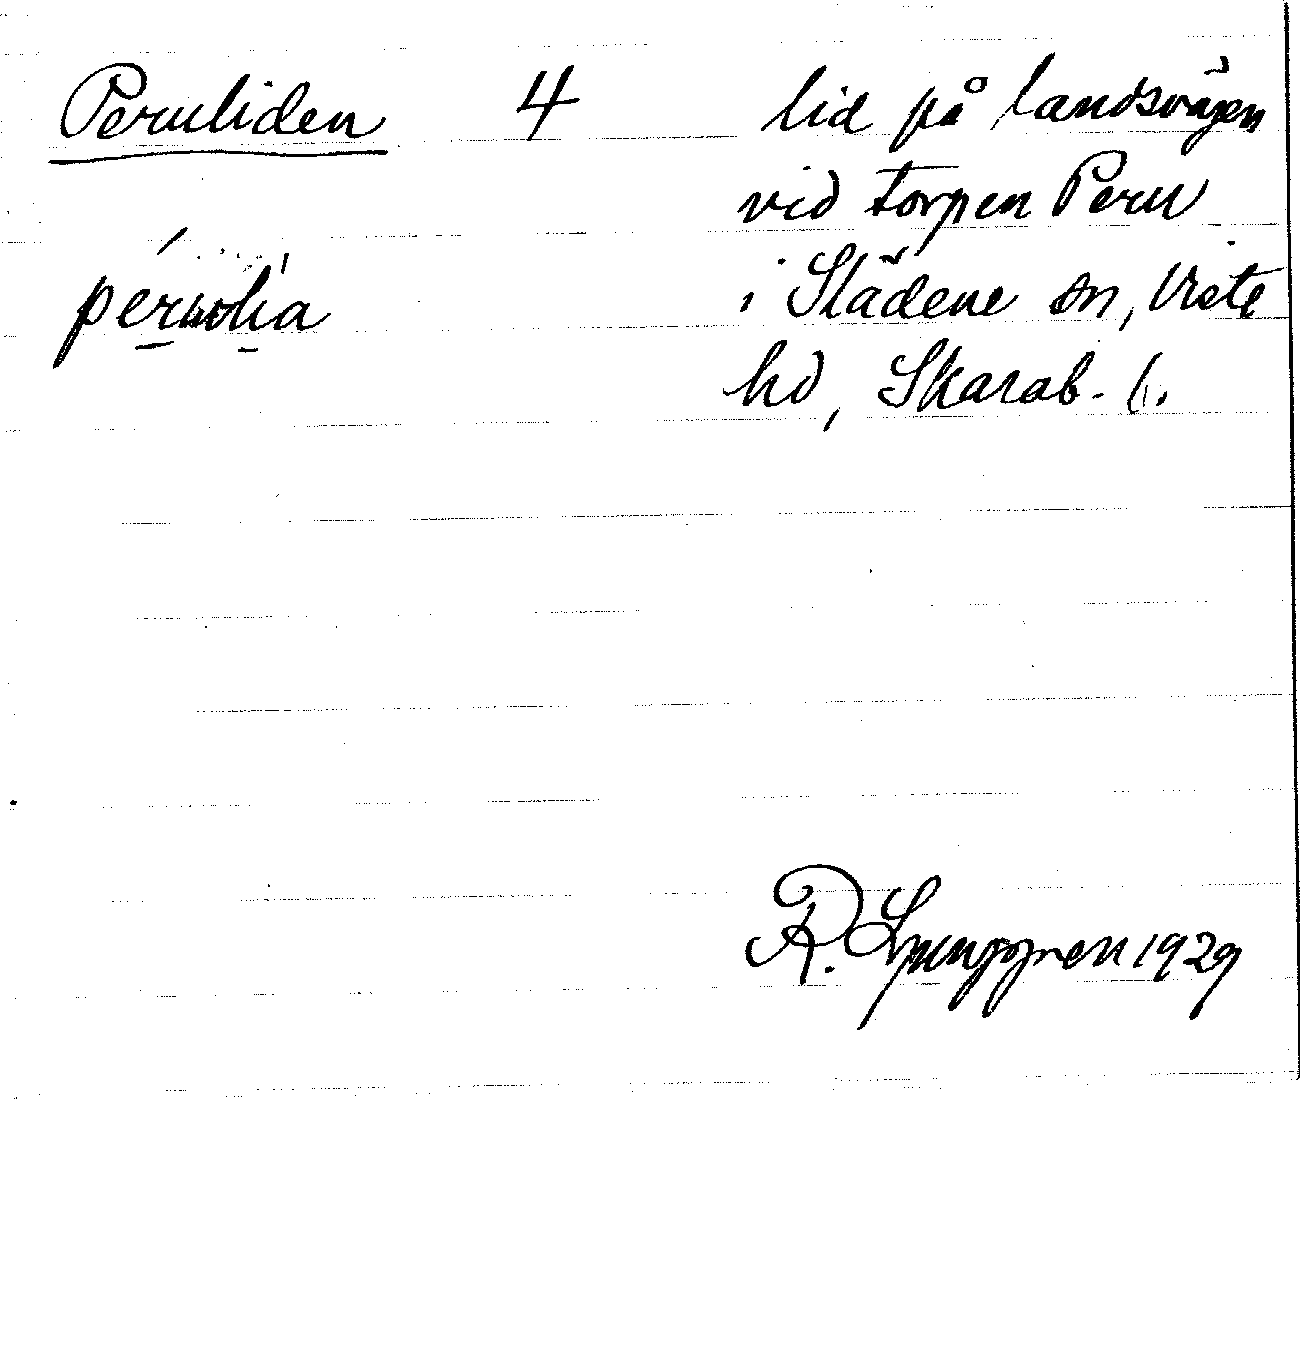 Peruliden 4 lid på landsvägen
vid torpen Peru
i Slädene sn, Viste
hd, Skarab. l.
R. Ljunggren 1929